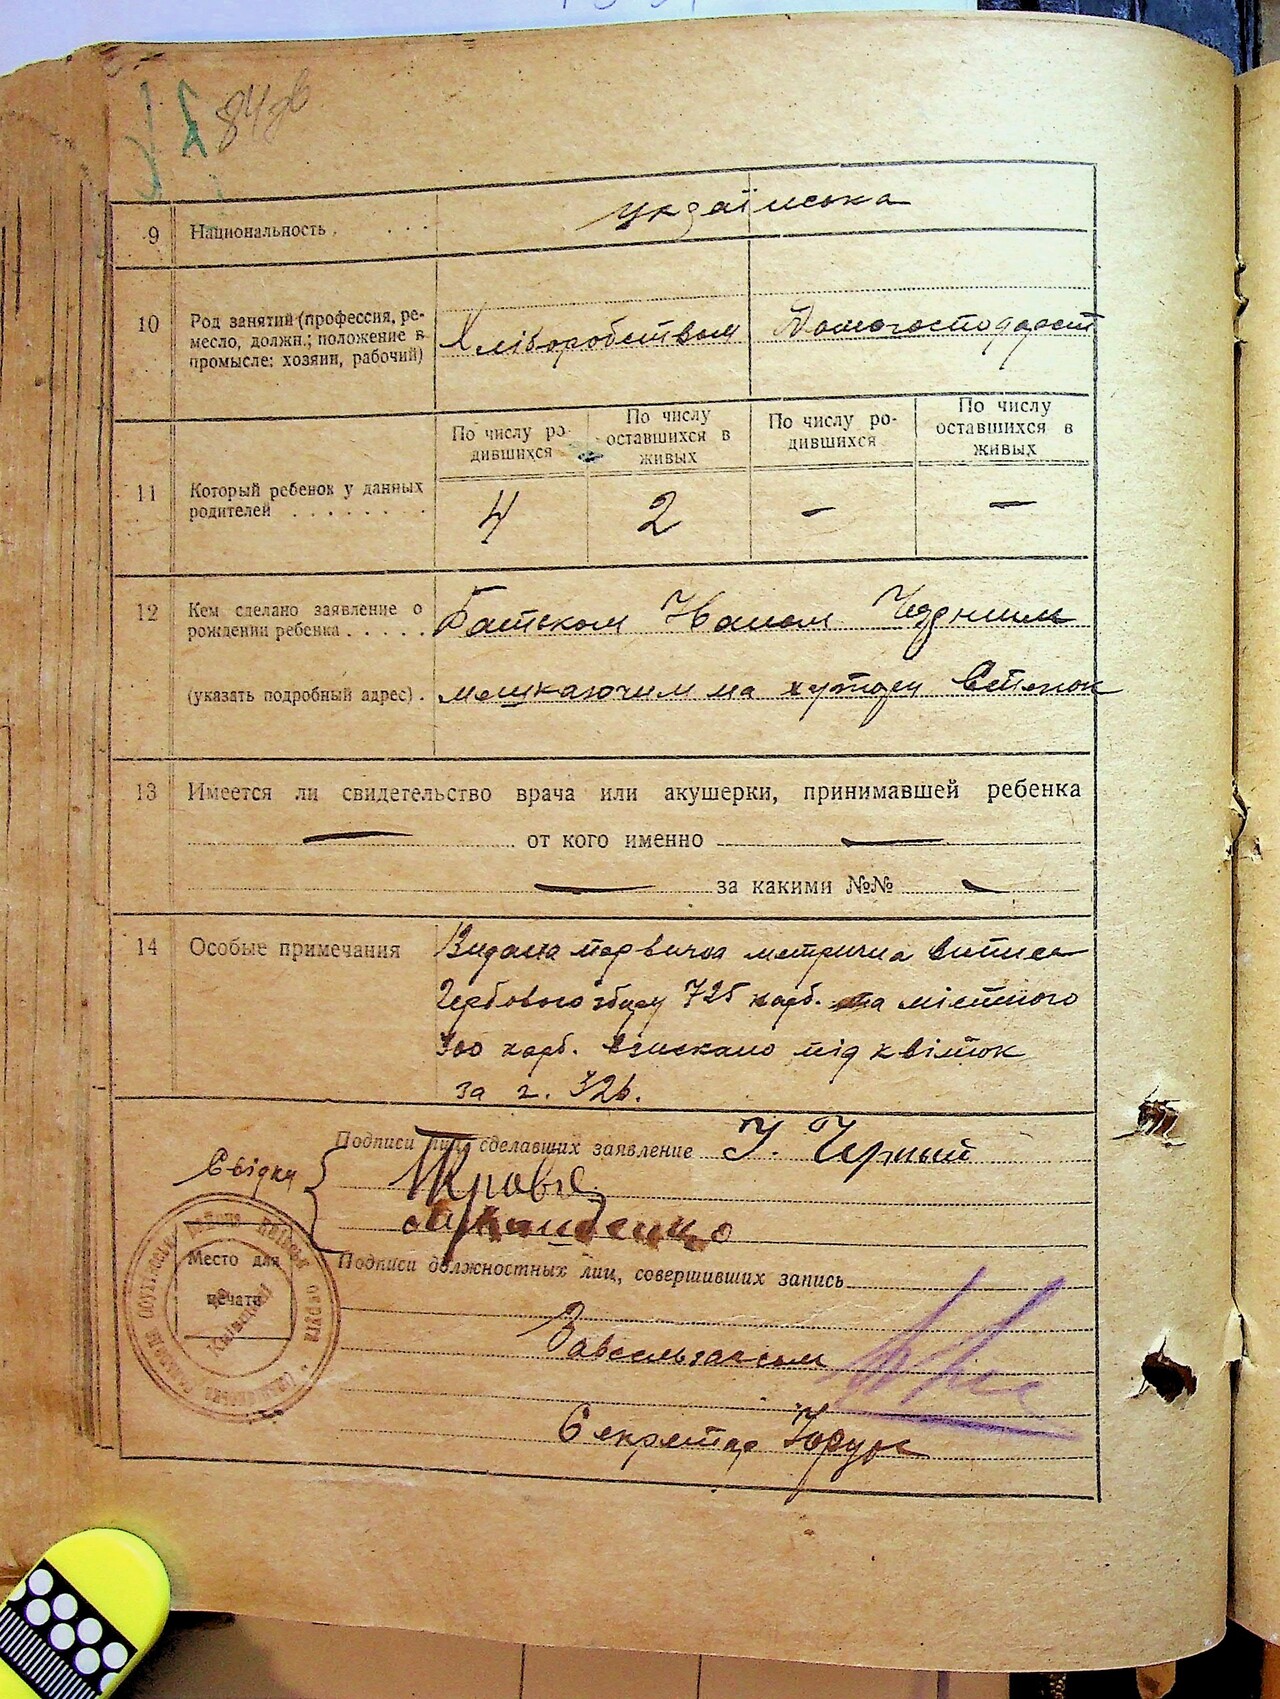 84 зв
9 Национальность . . . . українська
10 Род занятий (профессия, ре-
месло, должн.; положение в
промысле: хозяин, рабочий)
Хліборобством Домогосподаост
По числу ро-
дившихся
По числу
оставшихся в
живых
По числу ро-
дившихся
По числу
оставшихся в
живых
11 Который ребенок у данных
родителей . . . . . . . .
4 2 - -
12 Кем сделано заявление о
рождении ребенка . . . . .
Батьком Іваном Чорним
(указать подробный адрес) .
мешкаючим на хуторі
13 Имеется ли свидетельство врача или акушерки, принимавшей ребенка
— от кого именно —
— за какими №№ —
14 Особые примечания
Видана первична метрична випись
Гербового збору 725 карб. та містного
300 карб. взискано під квіток
за г. 326.
Подписи лиц, сделавших заявление І. Черный
Свідки
Подписи должностных лиц, совершивших запись
Место для
печати
Завсельзагсом
Секретар